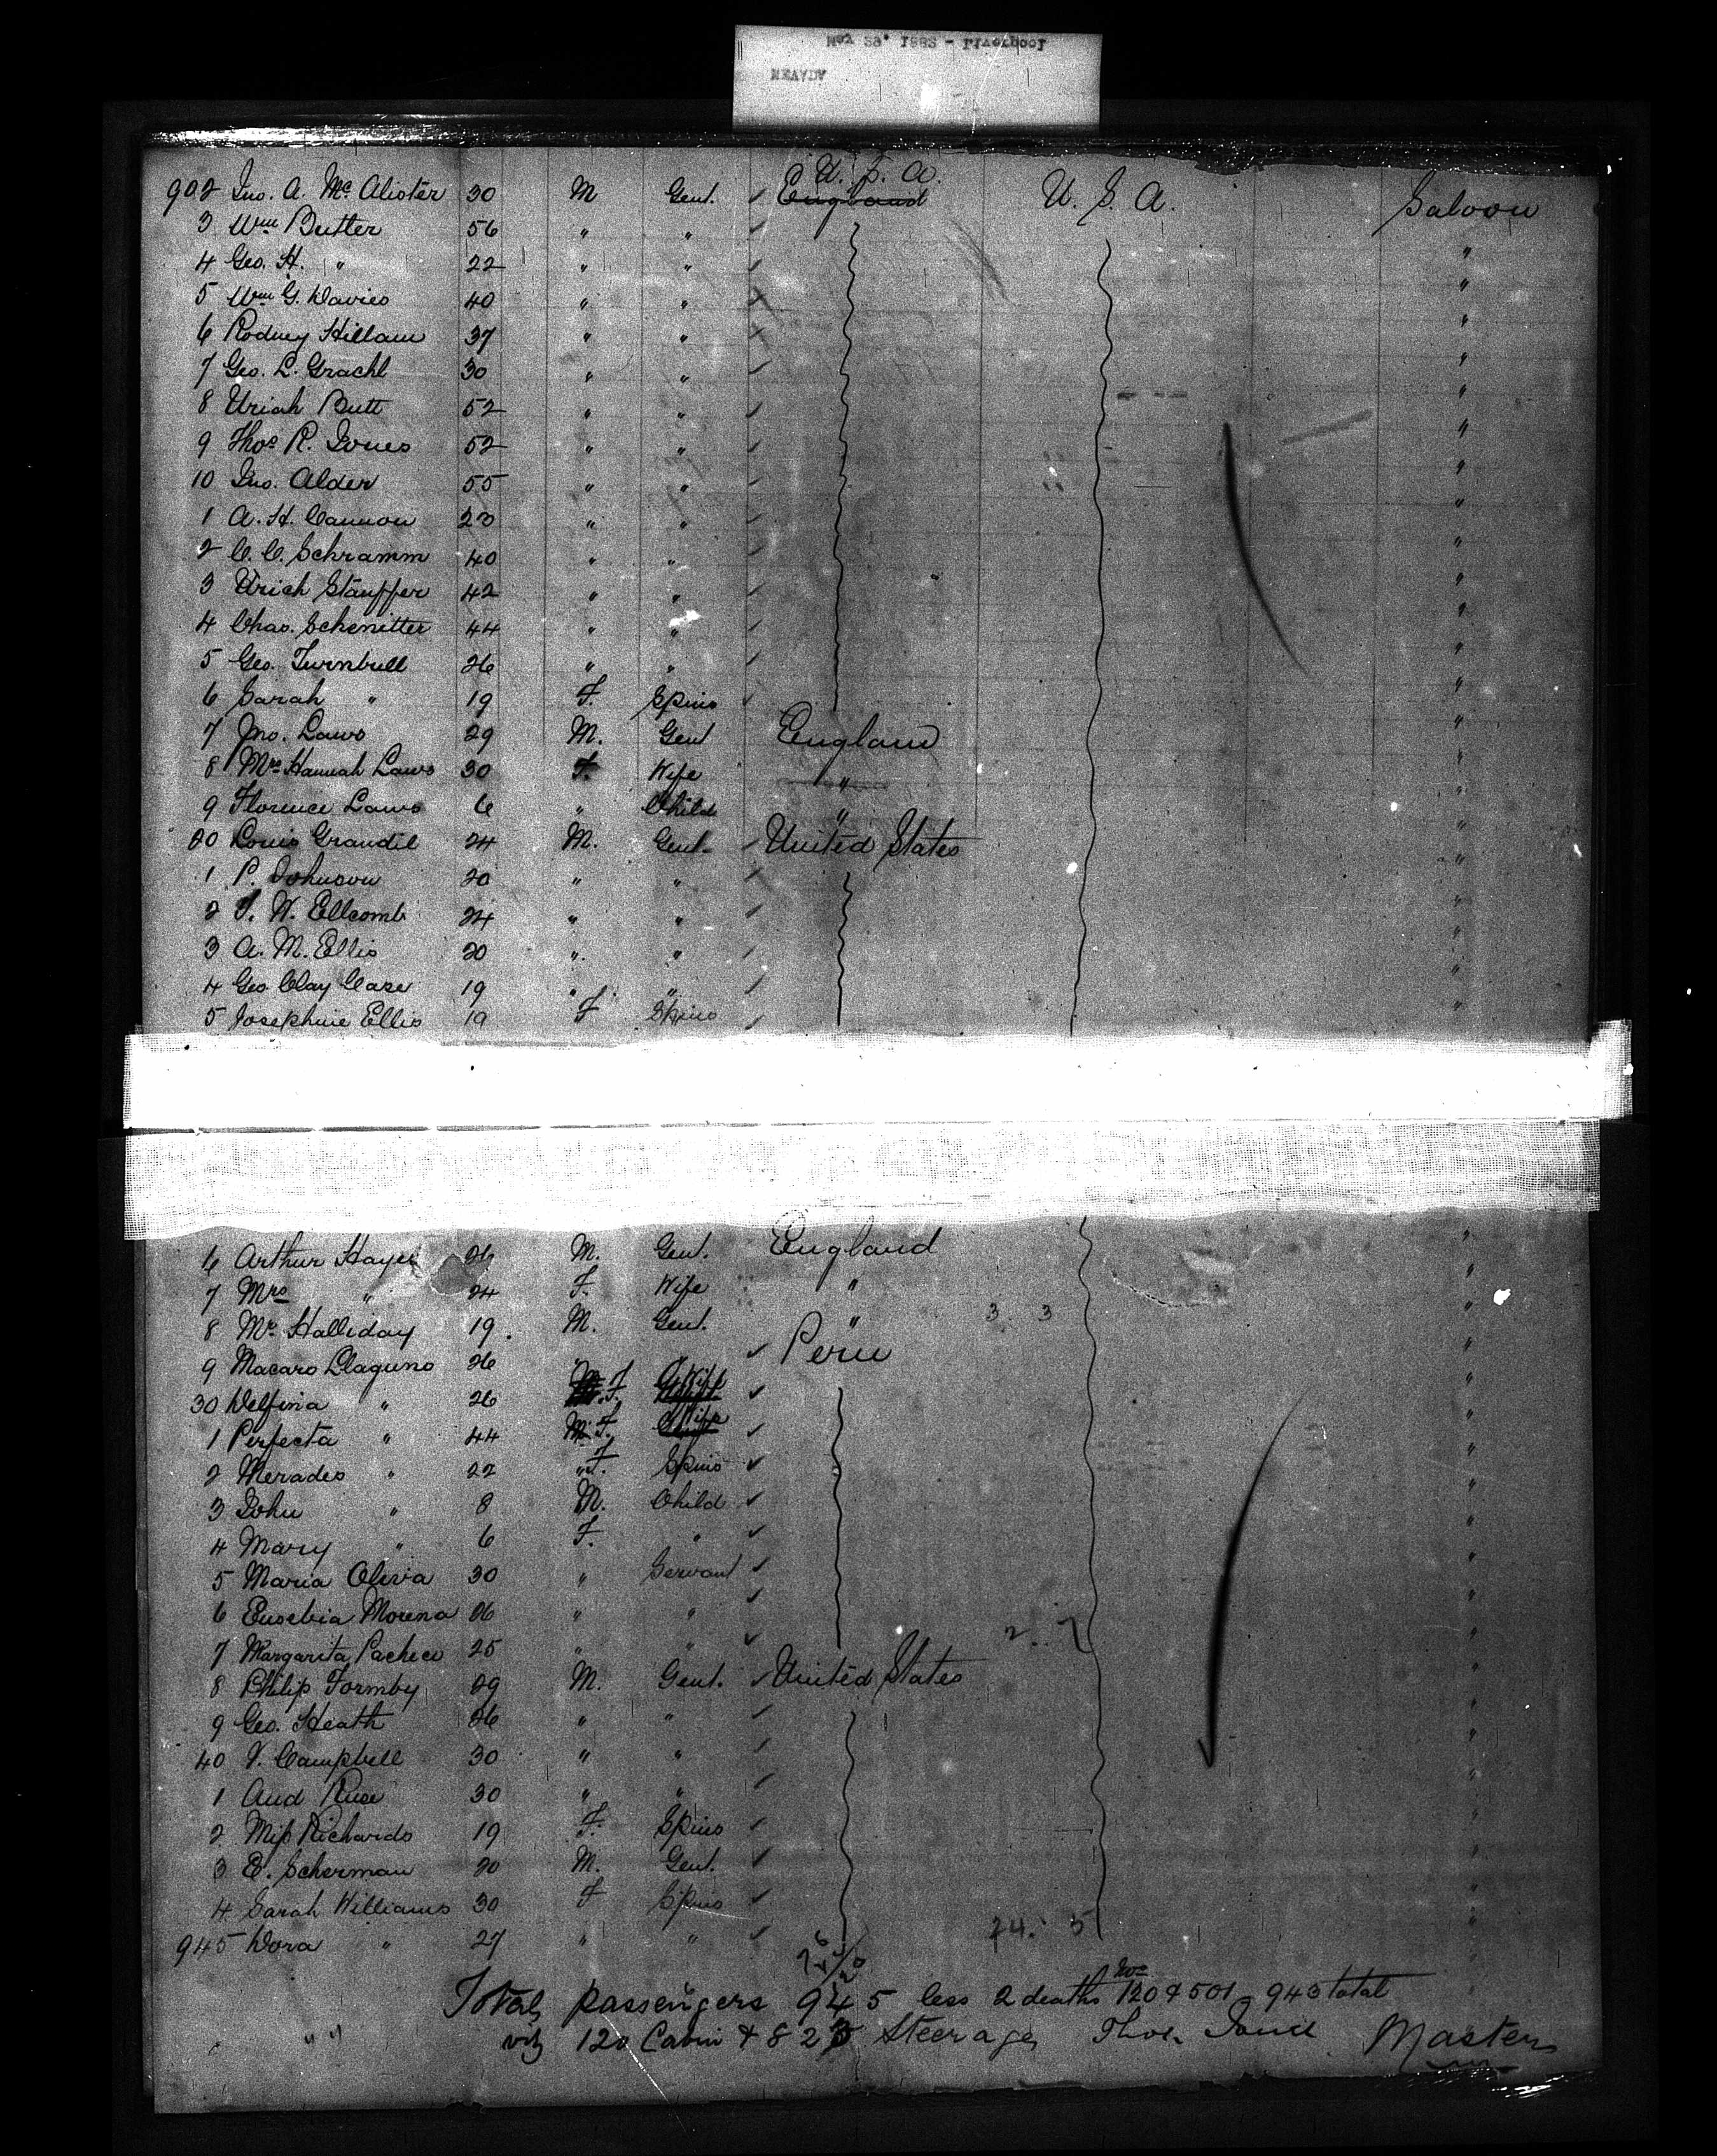 NEVADA
902 Jno. A. Mc. Alister 30 M Gent. ✓ England U. S. A. U. S. A. Saloon
3 Wm Butler 56 " " ✓ "
4 Geo. H. " 22 " " ✓ "
5 Wm G. Davies 40 " " ✓ "
6 Rodney Hillam 37 " " ✓ "
7 Geo. L. Grachl 30 " " ✓ "
8 Uriah Butt 52 " " ✓ "
9 Thos R. Jones 52 " " ✓ "
10 Jno. Alder 55 " " ✓ "
1 A. H. Cannon 23 " " ✓ "
2 C. C. Schramm 40 " " ✓ "
3 Urich Stauffer 42 " " ✓ "
4 Chas. Schenitter 44 " " ✓ "
5 Geo. Turnbull 26 " " ✓ "
6 Sarah " 19 F. Spins ✓ "
7 Jno. Laws 29 M. Gent England "
8 Mrs Hannah Laws 30 F. Wife " "
9 Florence Laws 6 " Child " "
20 Louis Grandil 24 M. Gent. ✓ United States "
1 P. Johnson 20 " " ✓ "
2 T. W. Ellcomb 24 " " ✓ "
3 A. M. Ellis 20 " " ✓ "
4 Geo Clay Case 19 " " ✓ "
5 Josephine Ellis 19 F Spins ✓ "
6 Arthur Hayes 26 M. Gent. England "
7 Mrs " 24 F. Wife " "
8 Mr. Halliday 19. M. Gent. " 3 3 "
9 Macaro Llaguno 26 " " ✓ Peru "
30 Delfina " 26 F. Wife ✓ "
1 Perfecta " 44 M. F. Wife ✓ "
2 Merades " 22 " F. Spins ✓ "
3 John " 8 M. Child ✓ "
4 Mary " 6 F. " ✓ "
5 Maria Oliva 30 " Servant ✓ "
6 Eusebia Morena 26 " " ✓ "
7 Margarita Pacheco 25 " " ✓ 2. 7 "
8 Philip Formby 29 M. Gent. ✓ United States "
9 Geo. Heath 26 " " ✓ "
40 V. Campbell 30 " " ✓ "
1 And Rice 30 " " ✓ "
2 Miss Richards 19 F. Spins ✓ "
3 E. Scherman 20 M. Gent. ✓ "
4 Sarah Williams 30 F Spins ✓ 24. 5 "
945 Dora " 27 " " ✓
Total passengers 945 less 2 deaths Nos 120 & 501 943 total
" " viz 120 Cabin & 823 Steerage Thos. Master